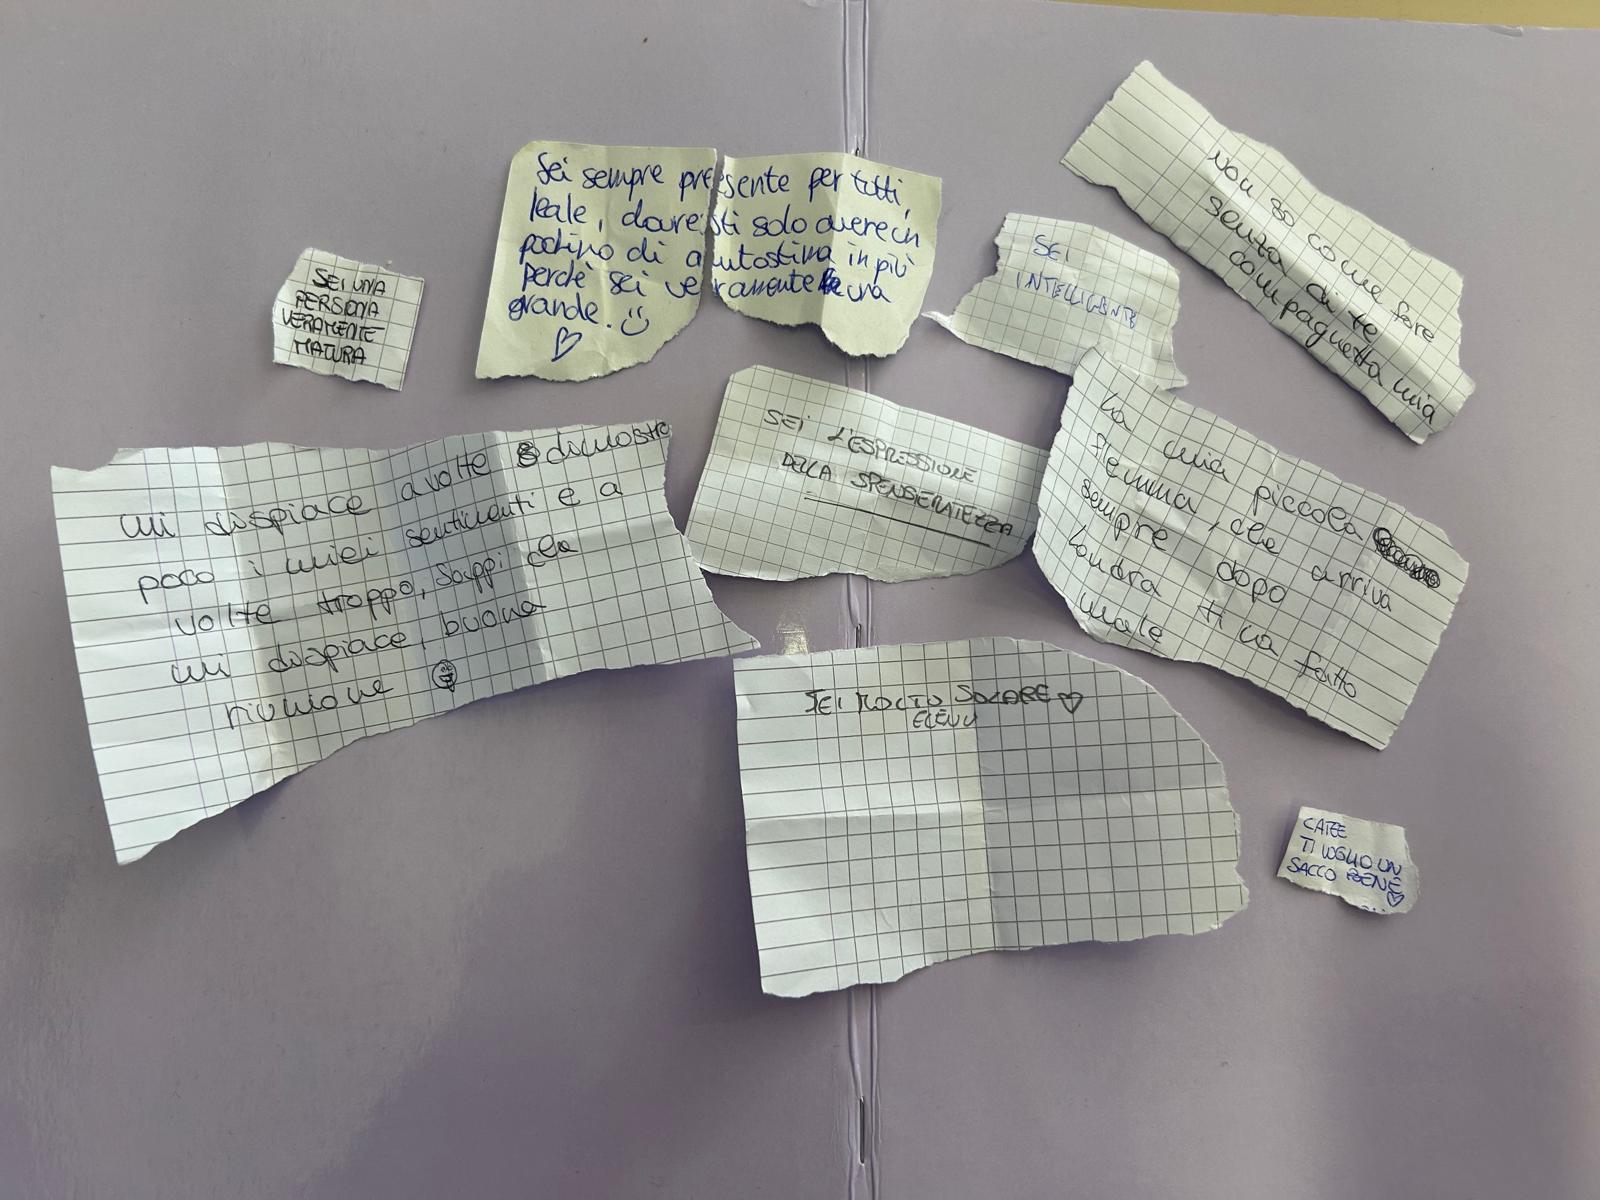 SEI UNA
PERSONA
VERAMENTE
MATURA
Sei sempre presente per tutti,
leale, dovresti solo avere un
pochino di autostima in più
perchè sei veramente una
grande. :)
♡
SEI
INTELLIGENTE
Non so come fare
senza di te
compagnetta mia
mi dispiace a volte dimostro
poco i miei sentimenti e a
volte troppo, sappi che
mi dispiace, buona
riunione
SEI L'ESPRESSIONE
DELLA SPENSERATEZZA
La mia piccola
flemma, che arriva
sempre dopo
Londra ti ha fatto
male
SEI MOLTO SOLARE ♡
CATEE
TI VOGLIO UN
SACCO BENE
♡